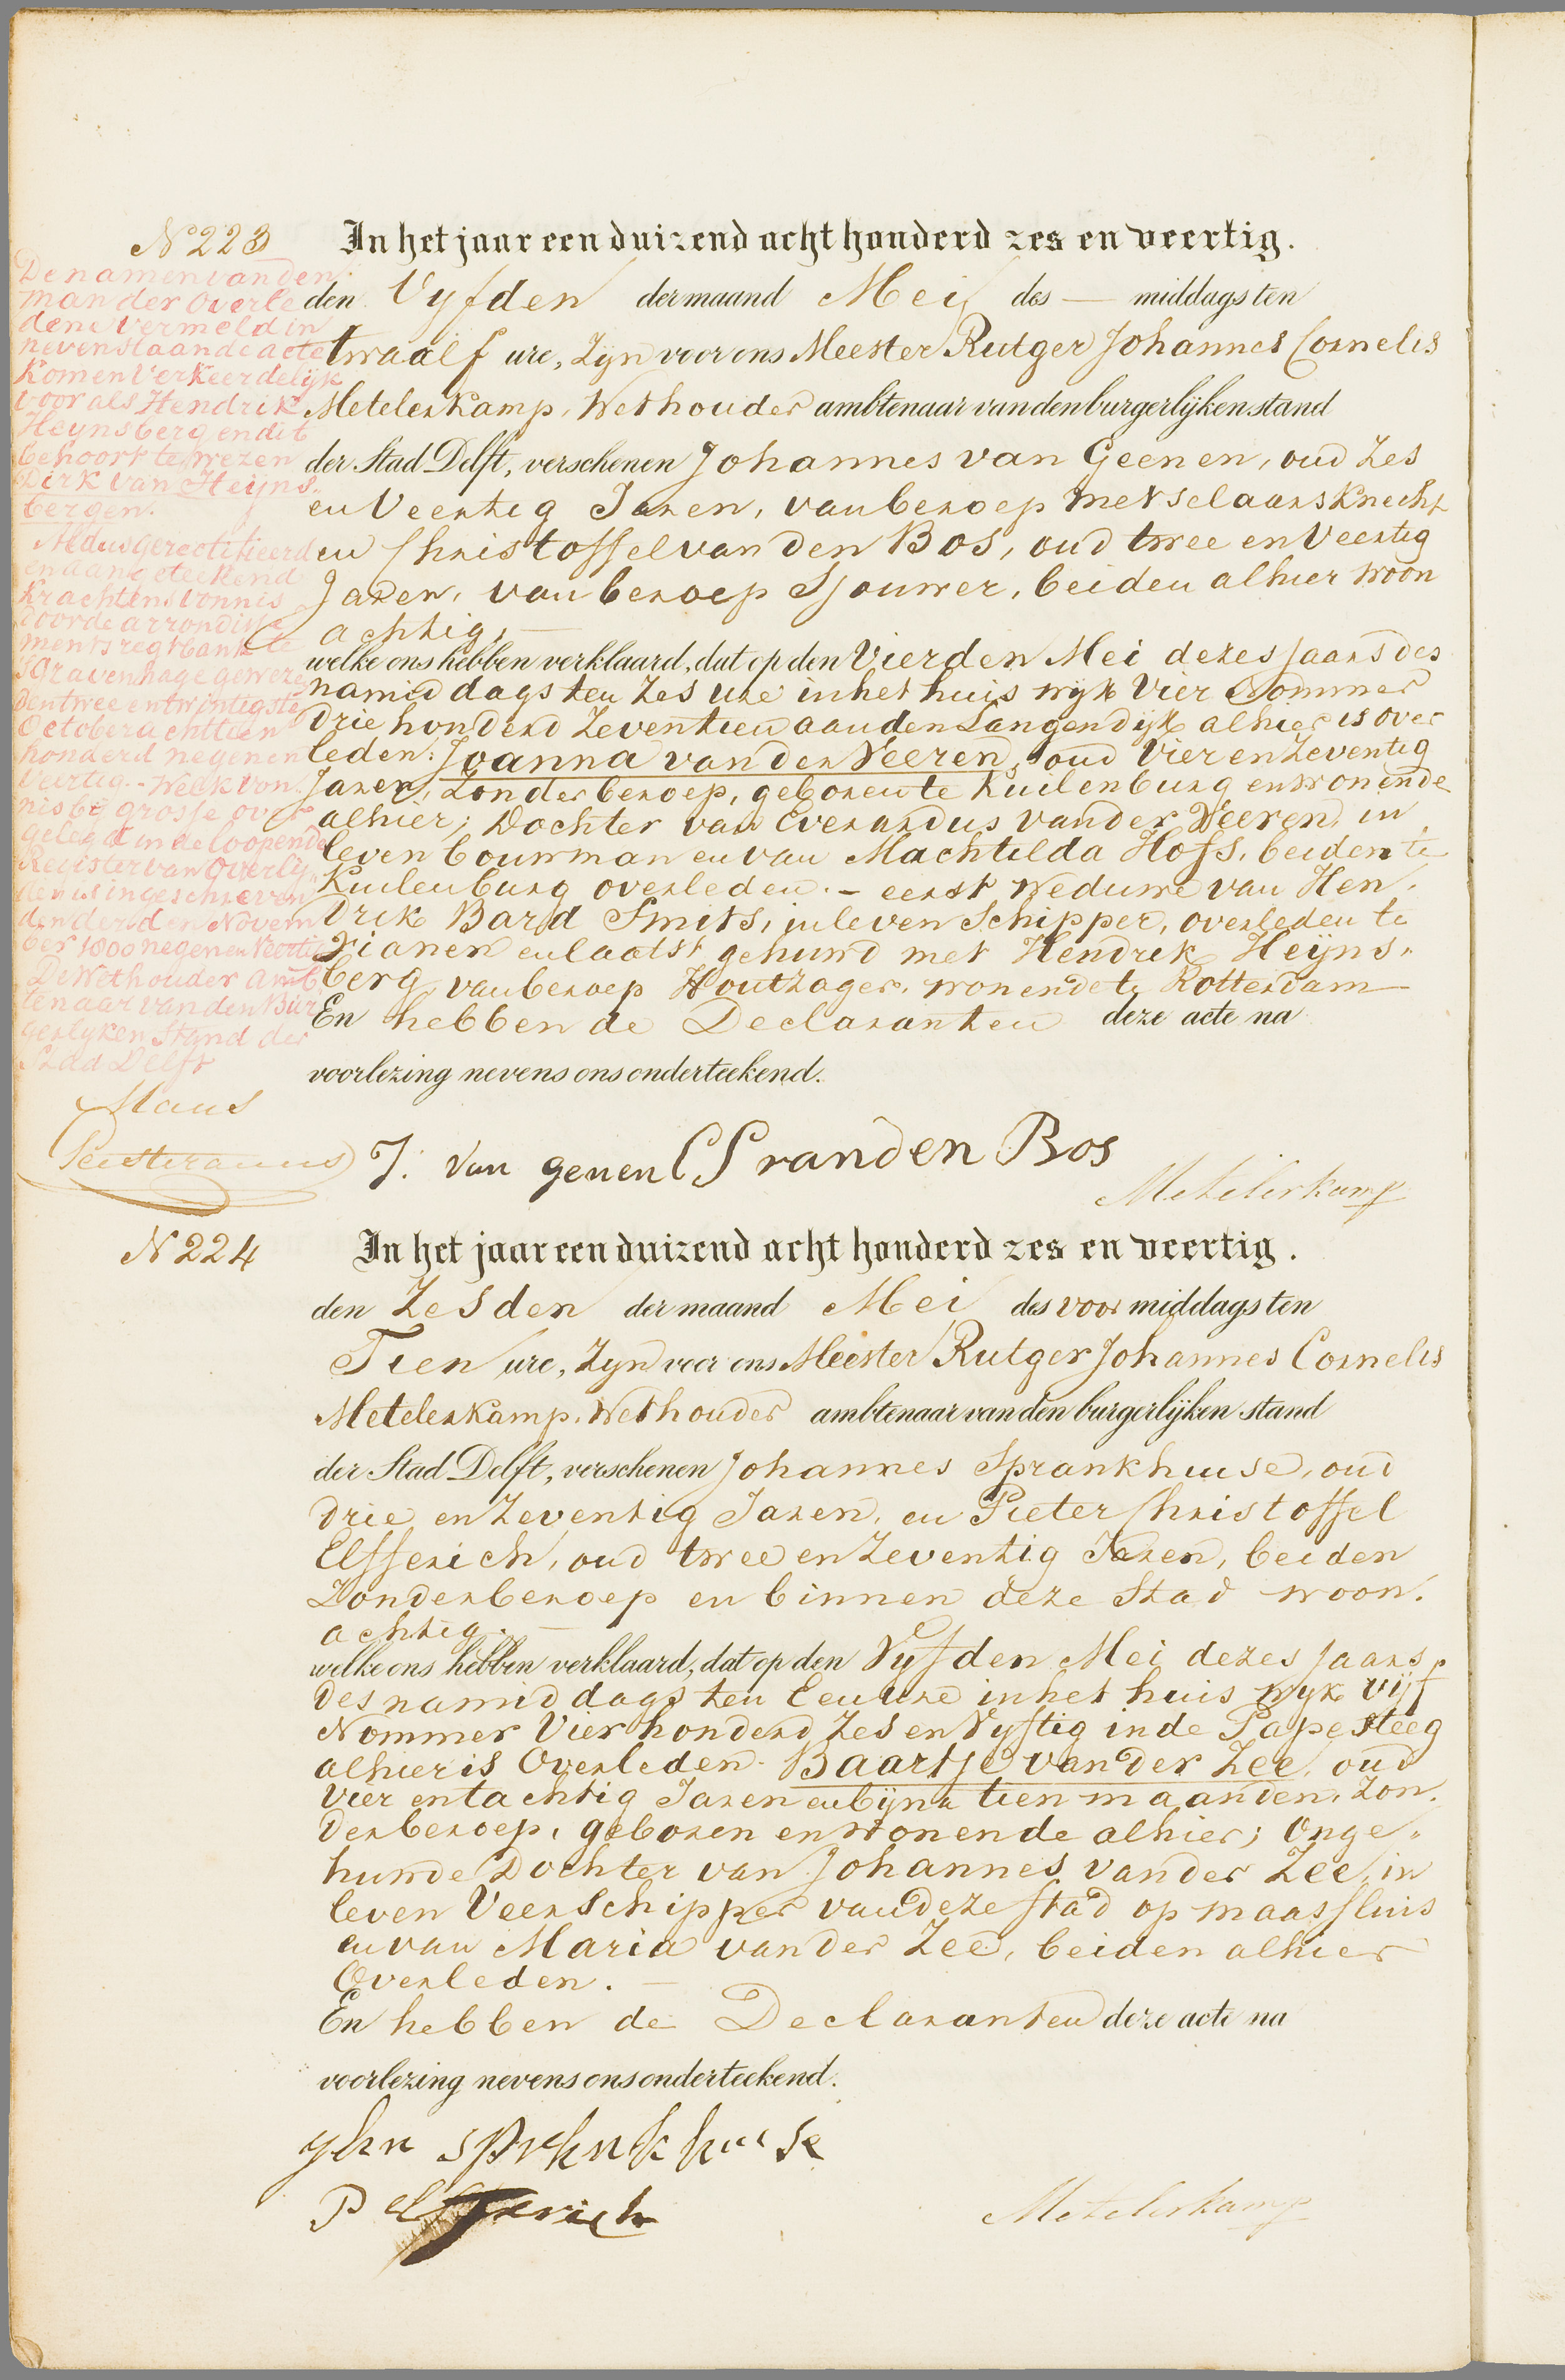 No 223
De namen van den
man der overle
dene vermeld in
nevenstaande acte
komen verkeerdelijk
voor als Hendrik
Heynsberg en dit
behoort te wezen
Dirk van Heijns-
bergen.
Aldus gerectificeerd
en aangeteekend
krachtens vonnis
door de arrondisse
ments regtbank te
s Gravenhage gewezen
den twee entwintigste
October achttien
honderd negenen
Veertig. - Welk von
nis bÿ grosse over
gelegd in de loopende
Register van Overlij
den is ingeschreven
den derden Novem
ber 1800 negen en Veertig
De Wethouder Amb
tenaar van den Bur
gerlyken Stand der
Stad Delft
Maus
In het jaar een duizend acht honderd zes en veertig.
den Vyfden der maand Mei des — middags ten
twaalf ure, Zyn voor ons Meester Rutger Johannes Cornelis
Metelerkamp, Wethouder ambtenaar van den burgerlijken stand
der Stad Delft, verschenen Johannes van Geenen, oud Zes
en Veertig Jaren, van beroep metselaarsknecht
en Christoffel van den Bos, oud twee en Veertig
Jaren, van beroep Sjouwer, beiden alhier woon
achtig. —
welke ons hebben verklaard, dat op den Vierden Mei dezes Jaars des
namiddags ten Zes ure in het huis wyk Vier Nommer
Drie honderd Zeventien aan den Langendyk alhier is over
leden. Joanna van der Veeren, oud Vier en Zeventig
Jaren, Zonder beroep, geboren te Kuilenburg en wonende
alhier; Dochter van Everardus van der Veeren, in
leven bouwman en van Machtilda Hofs, beiden te
Kuilenburg overleden. - eerst Weduwe van Hen-
drik Bard Smits, in leven Schipper, overleden te
Vianen en laatst gehuwd met Hendrik Heijns-
berg van beroep Houtzager, wonende te Rotterdam —
En hebben de Declaranten deze acte na
voorlezing nevens ons onderteekend.
J. Van genen CS vanden Bos
Metelerkamp
N 224
In het jaar een duizend acht honderd zes en veertig.
den Zesden der maand Mei des voor middags ten
Tien ure, Zyn voor ons Meester Rutger Johannes Cornelis
Metelerkamp, Wethouder ambtenaar van den burgerlijken stand
der Stad Delft, verschenen Johannes Sprankhuise, oud
Drie en Zeventig Jaren, en Pieter Christoffel
Elfferich, oud twee en Zeventig Jaren, beiden
Zonder beroep en binnen deze Stad woon-
achtig. —
welke ons hebben verklaard, dat op den Vyfden Mei dezes Jaars
des namiddags ten Een ure in het huis wyk Vijf
Nommer Vier honderd Zes en Vyftig in de Papesteeg
alhier is Overleden. Baartje van der Zee, oud
Vier en tachtig Jaren en bijna tien maanden, Zon-
der beroep, geboren en wonende alhier; Onge-
huwde Dochter van Johannes van der Zee, in
leven Veerschipper van deze stad op maassluis
en van Maria van der Zee, beiden alhier
Overleden. —
En hebben de Declaranten deze acte na
voorlezing nevens ons onderteekend.
yhn sprhnkhuise
P elfferich
Metelerkamp